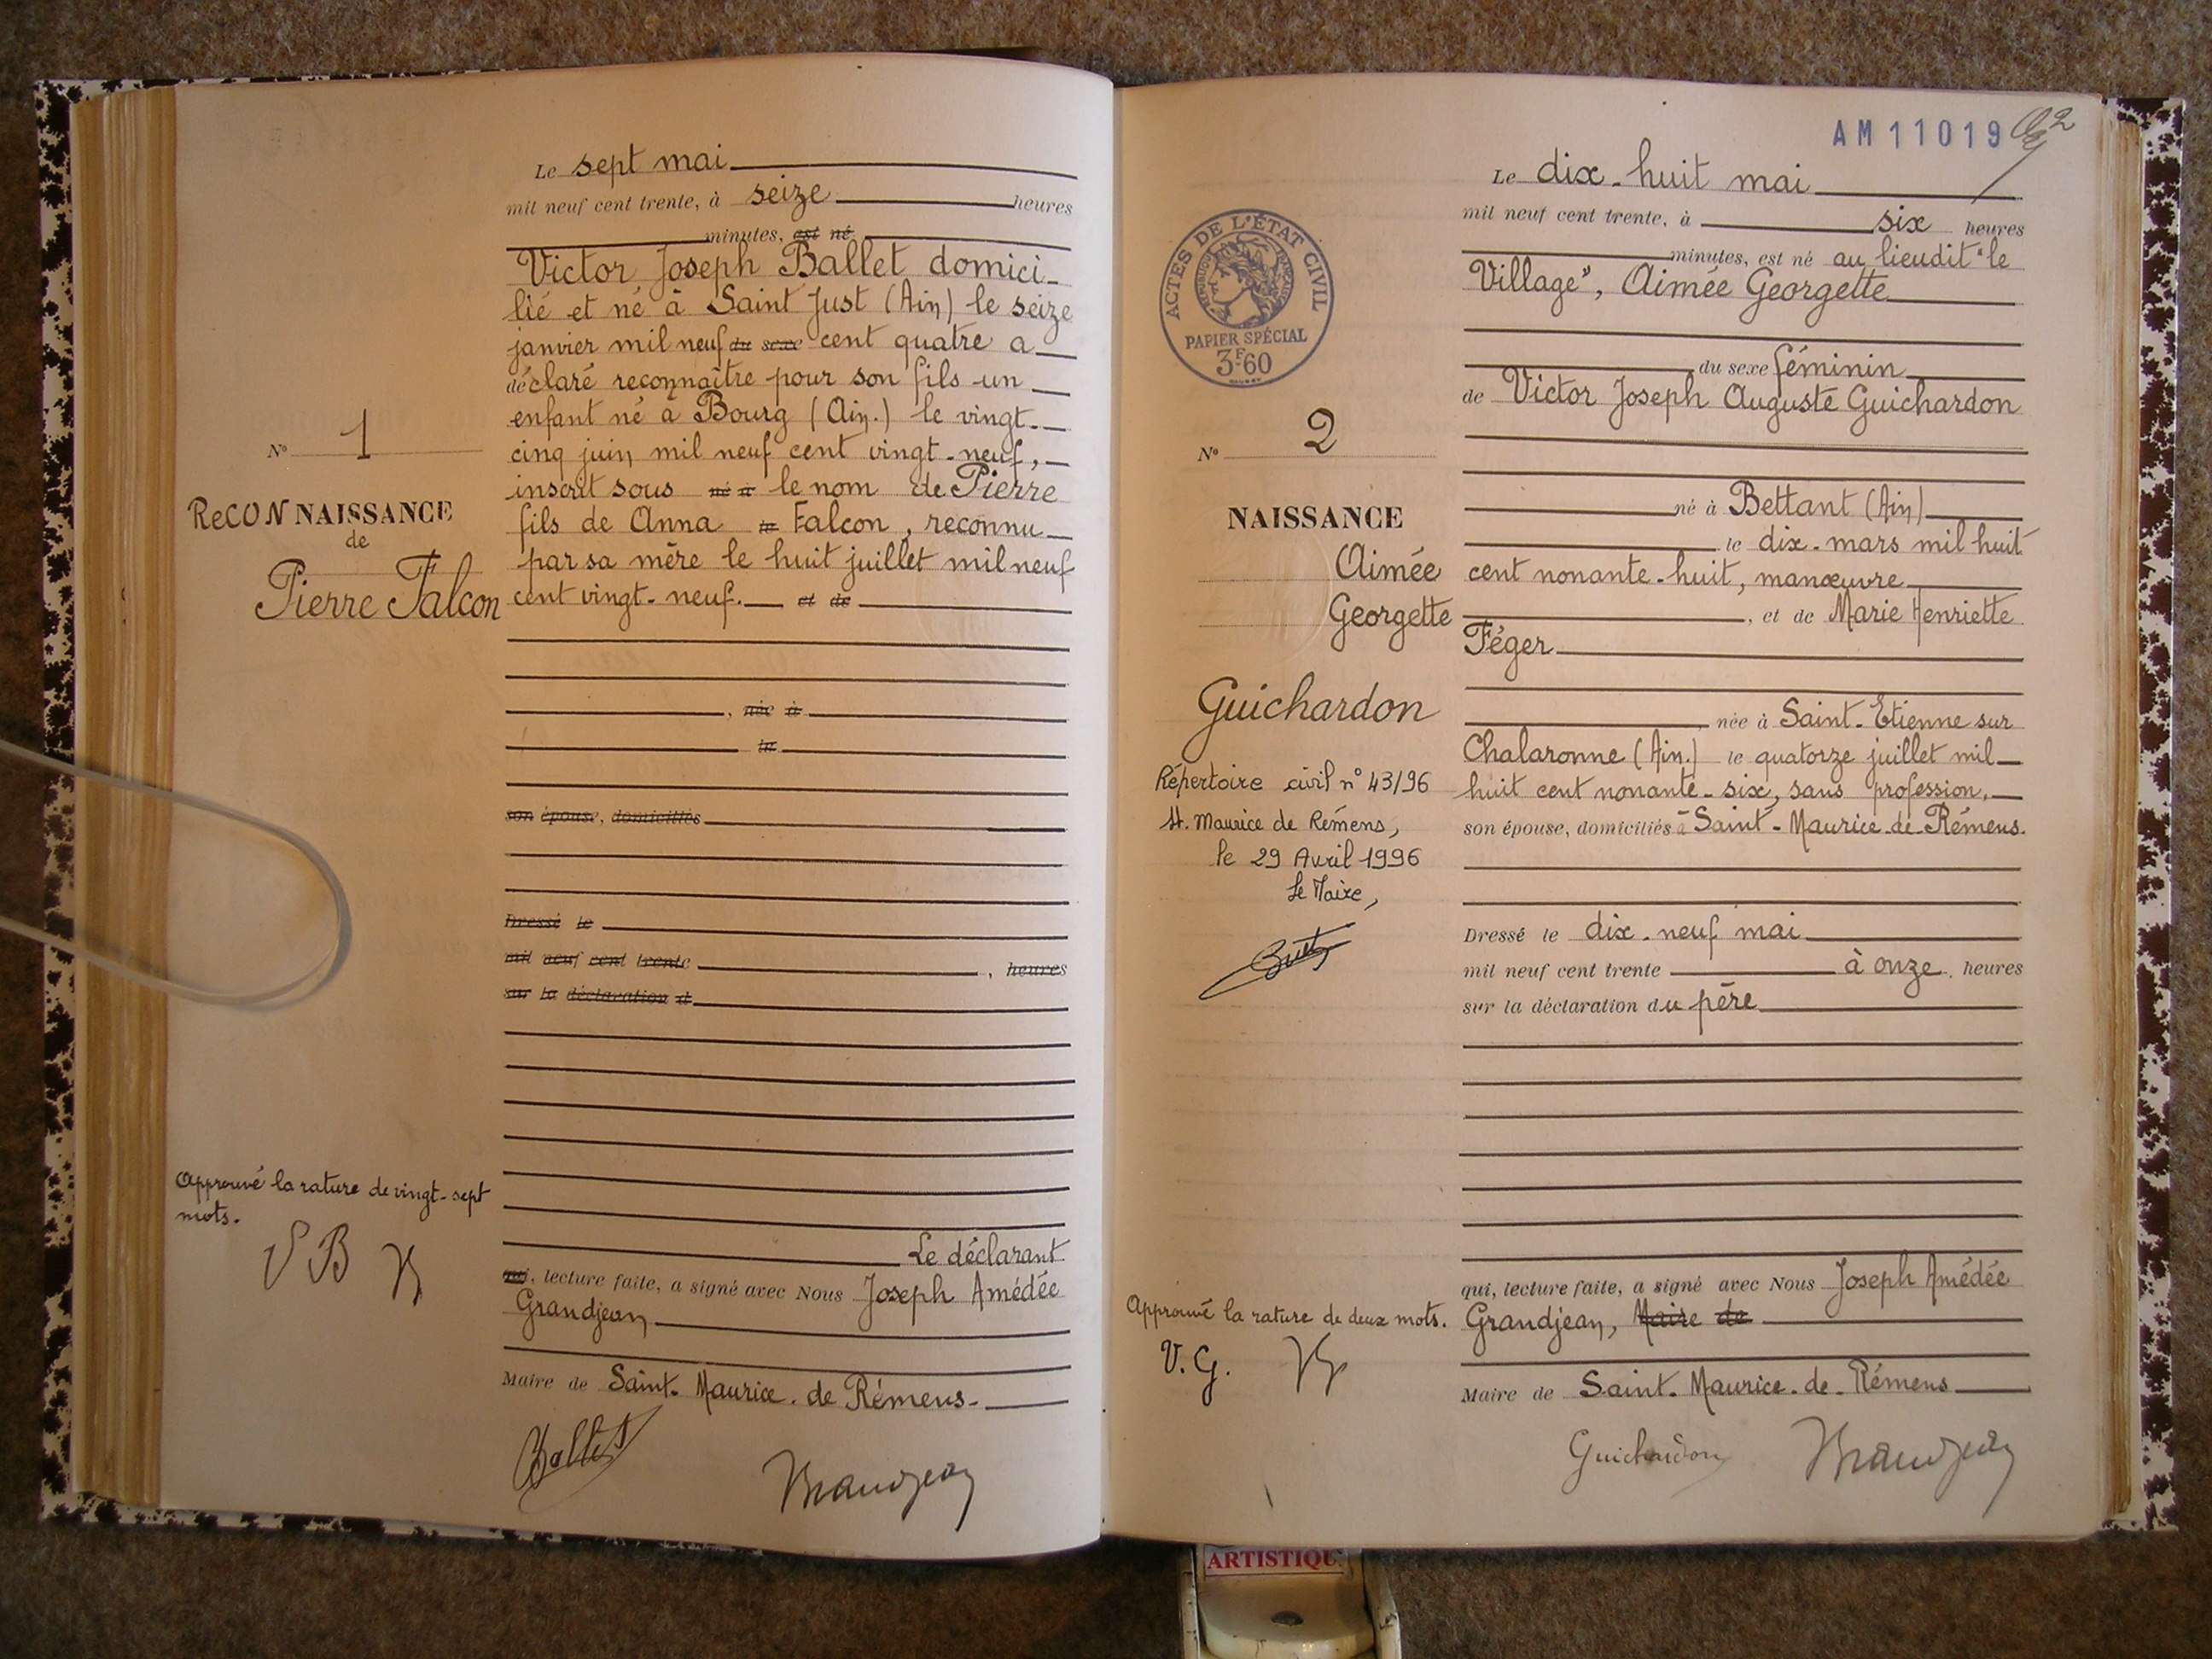 Le sept mai
mil neuf cent trente, à seize heures
minutes, est né
Victor Joseph Ballet domici-
lié et né à Saint Just (Ain) le seize
janvier mil neuf du sexe cent quatre a
déclaré reconnaître pour son fils un
enfant né à Bourg (Ain.) le vingt-
cinq juin mil neuf cent vingt-neuf,
inscrit sous né à le nom de Pierre
fils de Anna le Falcon, reconnu
par sa mère le huit juillet mil neuf
cent vingt-neuf. et de
N° 1
ReCONNAISSANCE
de
Pierre Falcon
, née à
le
son épouse, domiciliés
Dressé le
mil neuf cent trente , heures
sur la déclaration d
Approuvé la rature de vingt-sept
mots.
V B
Le déclarant
qui, lecture faite, a signé avec Nous Joseph Amédée
Grandjean
Maire de Saint-Maurice-de-Rémens-
Ballet Grandjean
AM11019
Le dix-huit mai
mil neuf cent trente, à six heures
minutes, est né au lieudit "le
Village", Aimée Georgette
du sexe féminin
de Victor Joseph Auguste Guichardon
né à Bettant (Ain)
le dix-mars mil huit
cent nonante-huit, manœuvre
, et de Marie Henriette
Féger
, née à Saint-Etienne sur
Chalaronne (Ain.) le quatorze juillet mil
huit cent nonante-six, sans profession,
son épouse, domiciliés à Saint-Maurice-de-Rémens.
Dressé le dix-neuf mai
mil neuf cent trente à onze heures
sur la déclaration du père
ACTES DE L'ÉTAT CIVIL
RÉPUBLIQUE FRANÇAISE
PAPIER SPÉCIAL
3F60
N° 2
NAISSANCE
Aimée
Georgette
Guichardon
Répertoire civil n° 43/96
St. Maurice de Rémens,
le 29 Avril 1996
Le Maire,
Approuvé la rature de deux mots.
V. G.
qui, lecture faite, a signé avec Nous Joseph Amédée
Grandjean, Maire de
Maire de Saint-Maurice-de-Rémens
Guichardon Grandjean
ARTISTIQU